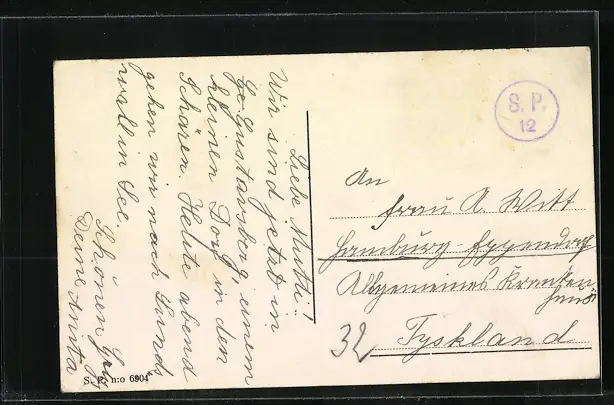 Liebe Mutti!
Wir sind jetzt in
Gustavsberg, einem
kleinen Dorf in den
Schären. Heute abend
gehen wir nach Sunds
wall in See.
Schönen Gruß
Deine Anita
S. P. n:o 6904
S. P.
12
An
Frau A. Witt
Hamburg-Eppendorf
Allgemeines Kranken
haus
Tyskland
32